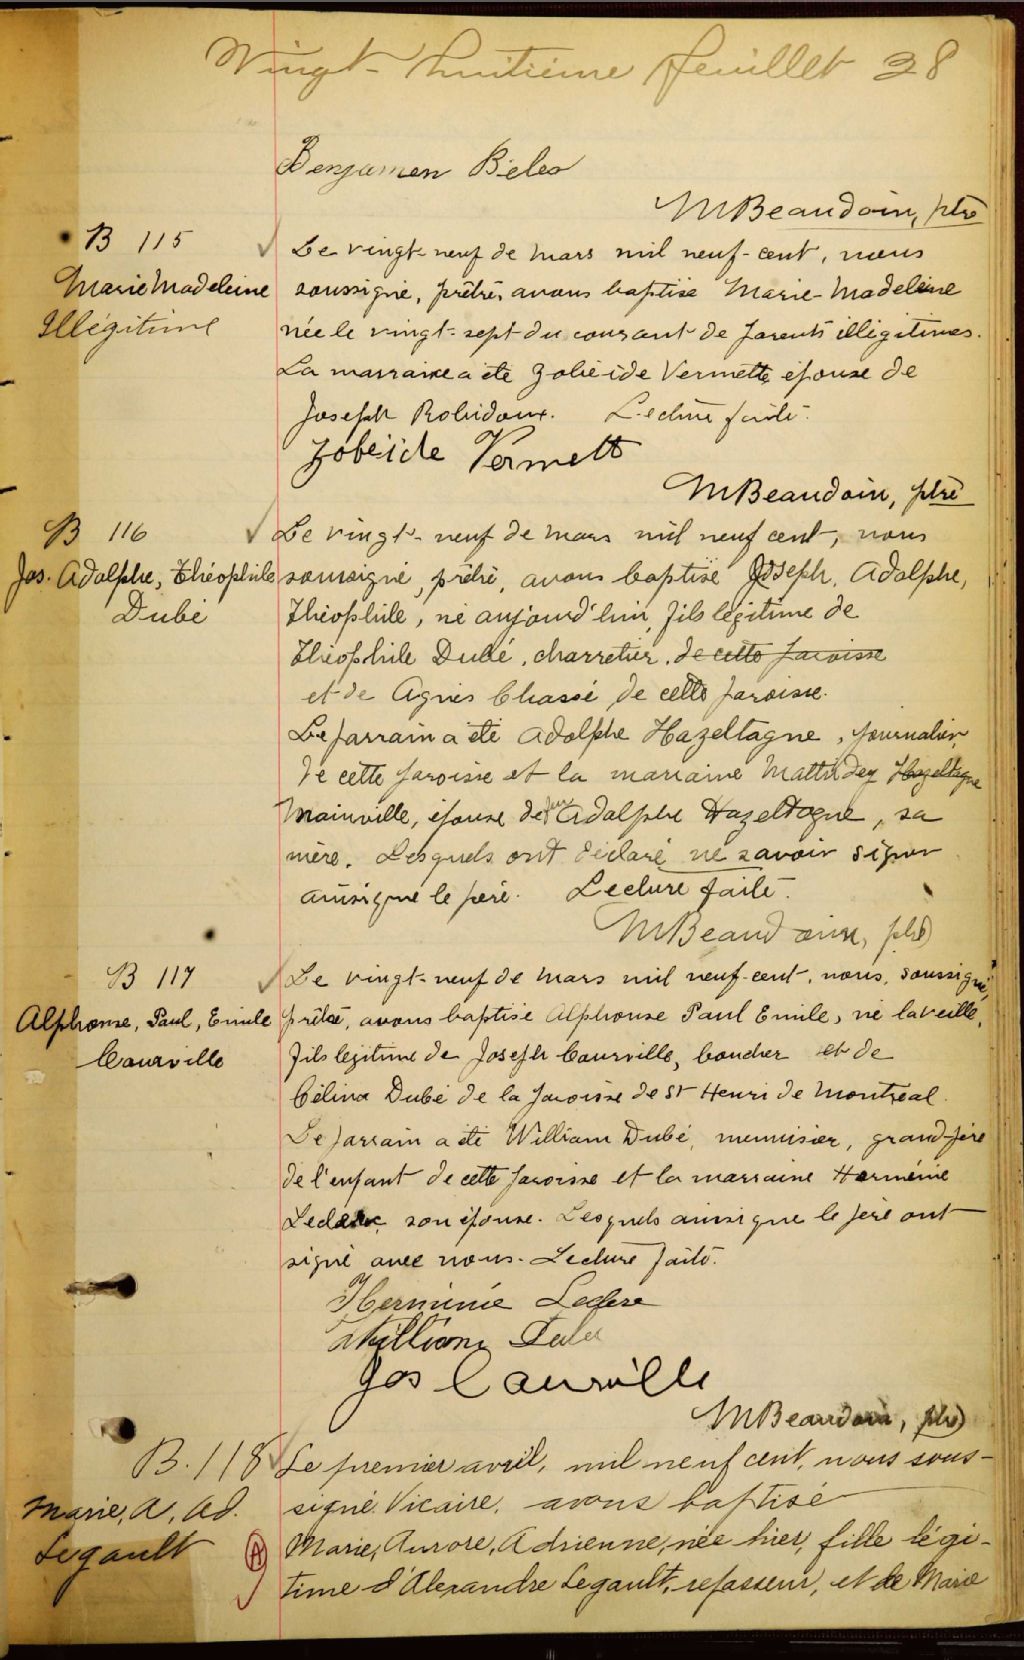 Vingt-huitième feuillet 28
Benjamen Biles
MBeaudoin, ptre
B 115
Marie Madeleine
Illégitime
Le vingt-neuf de mars mil neuf-cent, nous
soussigné, prêtre, avons baptisé Marie-Madeleine
née le vingt-sept du courant de parents illégitimes.
La marraine a été Zobéide Vermette épouse de
Joseph Robidoux. Lecture faite.
Zobéide Vermett
MBeaudoin, ptre
B 116
Jos. Adolphe, Théophile
Dubé
Le vingt-neuf de mars mil neuf cent, nous
soussigné, prêtre, avons baptisé Joseph, Adolphe,
Théophile, né aujourd'hui, fils légitime de
Théophile Dubé, charretier, de cette paroisse
et de Agnès Chassé de cette paroisse.
Le parrain a été Adolphe Hazeltagne, journalier,
de cette paroisse et la marraine Hazeltagne
Mainville, épouse de feu Adolphe Hazeltagne, sa
mère. Lesquels ont déclaré ne savoir signer
ainsi que le père. Lecture faite.
MBeaudoin, ptre
B 117
Alphonse, Paul, Emile
Courville
Le vingt-neuf de mars mil neuf-cent, nous, soussigné,
prêtre, avons baptisé Alphonse Paul Emile, né la veille,
fils légitime de Joseph Courville, boucher et de
Célina Dubé de la paroisse de St Henri de Montréal.
Le parrain a été William Dubé, menuisier, grand-père
de l'enfant de cette paroisse et la marraine Herménie
Leclerc, son épouse. Lesquels ainsi que le père ont
signé avec nous. Lecture faite.
Herminie Leclere
William Dube
Jos Courville
MBeaudoin, ptre
B. 118
Marie, A, Ad.
Legault
Le premier avril, mil neuf cent, nous sous-
signé Vicaire, avons baptisé
Marie, Aurore, Adrienne, née hier, fille légi-
time d'Alexandre Legault, repasseur, et de Marie